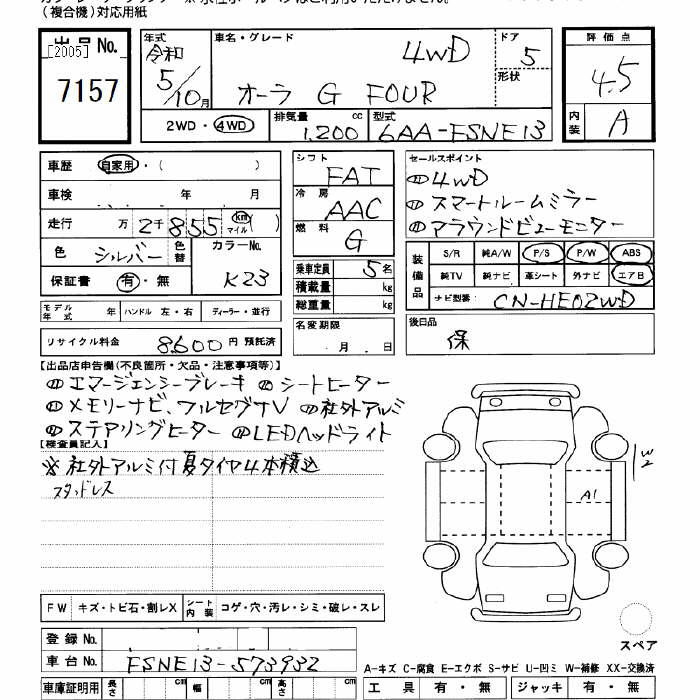 （複合機）対応用紙
出品No.
[2005]
7157
年式 車名・グレード 4WD ドア 評価点
令和 5/10月 オーラ G FOUR 5 形状 4.5
2WD・4WD 排気量 1.200 cc 型式 6AA-FSNE13 内装 A
車歴 自家用・( )
車検 年 月
走行 万 2千855 km マイル ( )
色 シルバー 色替 カラーNo.
保証書 有・無 K23
シフト FAT
冷房 AAC
燃料 G
乗車定員 5名
積載量 kg
総重量 kg
セールスポイント
4WD
スマートルームミラー
アラウンドビューモニター
装備品 S/R 純A/W P/S P/W ABS
純TV 純ナビ 革シート 外ナビ エアB
ナビ型番 CN-HE02WD
モデル年式 年 ハンドル 左・右 ディーラー・並行
名変期限 月 日
後日品 保
リサイクル料金 8600 円 預託済
【出品店申告欄(不良箇所・欠品・注意事項等)】
エマージェンシーブレーキ シートヒーター
メモリーナビ、フルセグTV 社外アルミ
ステアリングヒーター LEDヘッドライト
【検査員記入】
※社外アルミ付夏タイヤ4本積込
スタッドレス
W2
A1
FW キズ・トビ石・割レX シート内装 コゲ・穴・汚レ・シミ・破レ・スレ
スペア
登録No.
車台No. FSNE13-573932
A-キズ C-腐食 E-エクボ S-サビ U-凹ミ W-補修 XX-交換済
車庫証明用 長さ cm 幅 cm 高さ cm 工具 有・無 ジャッキ 有・無